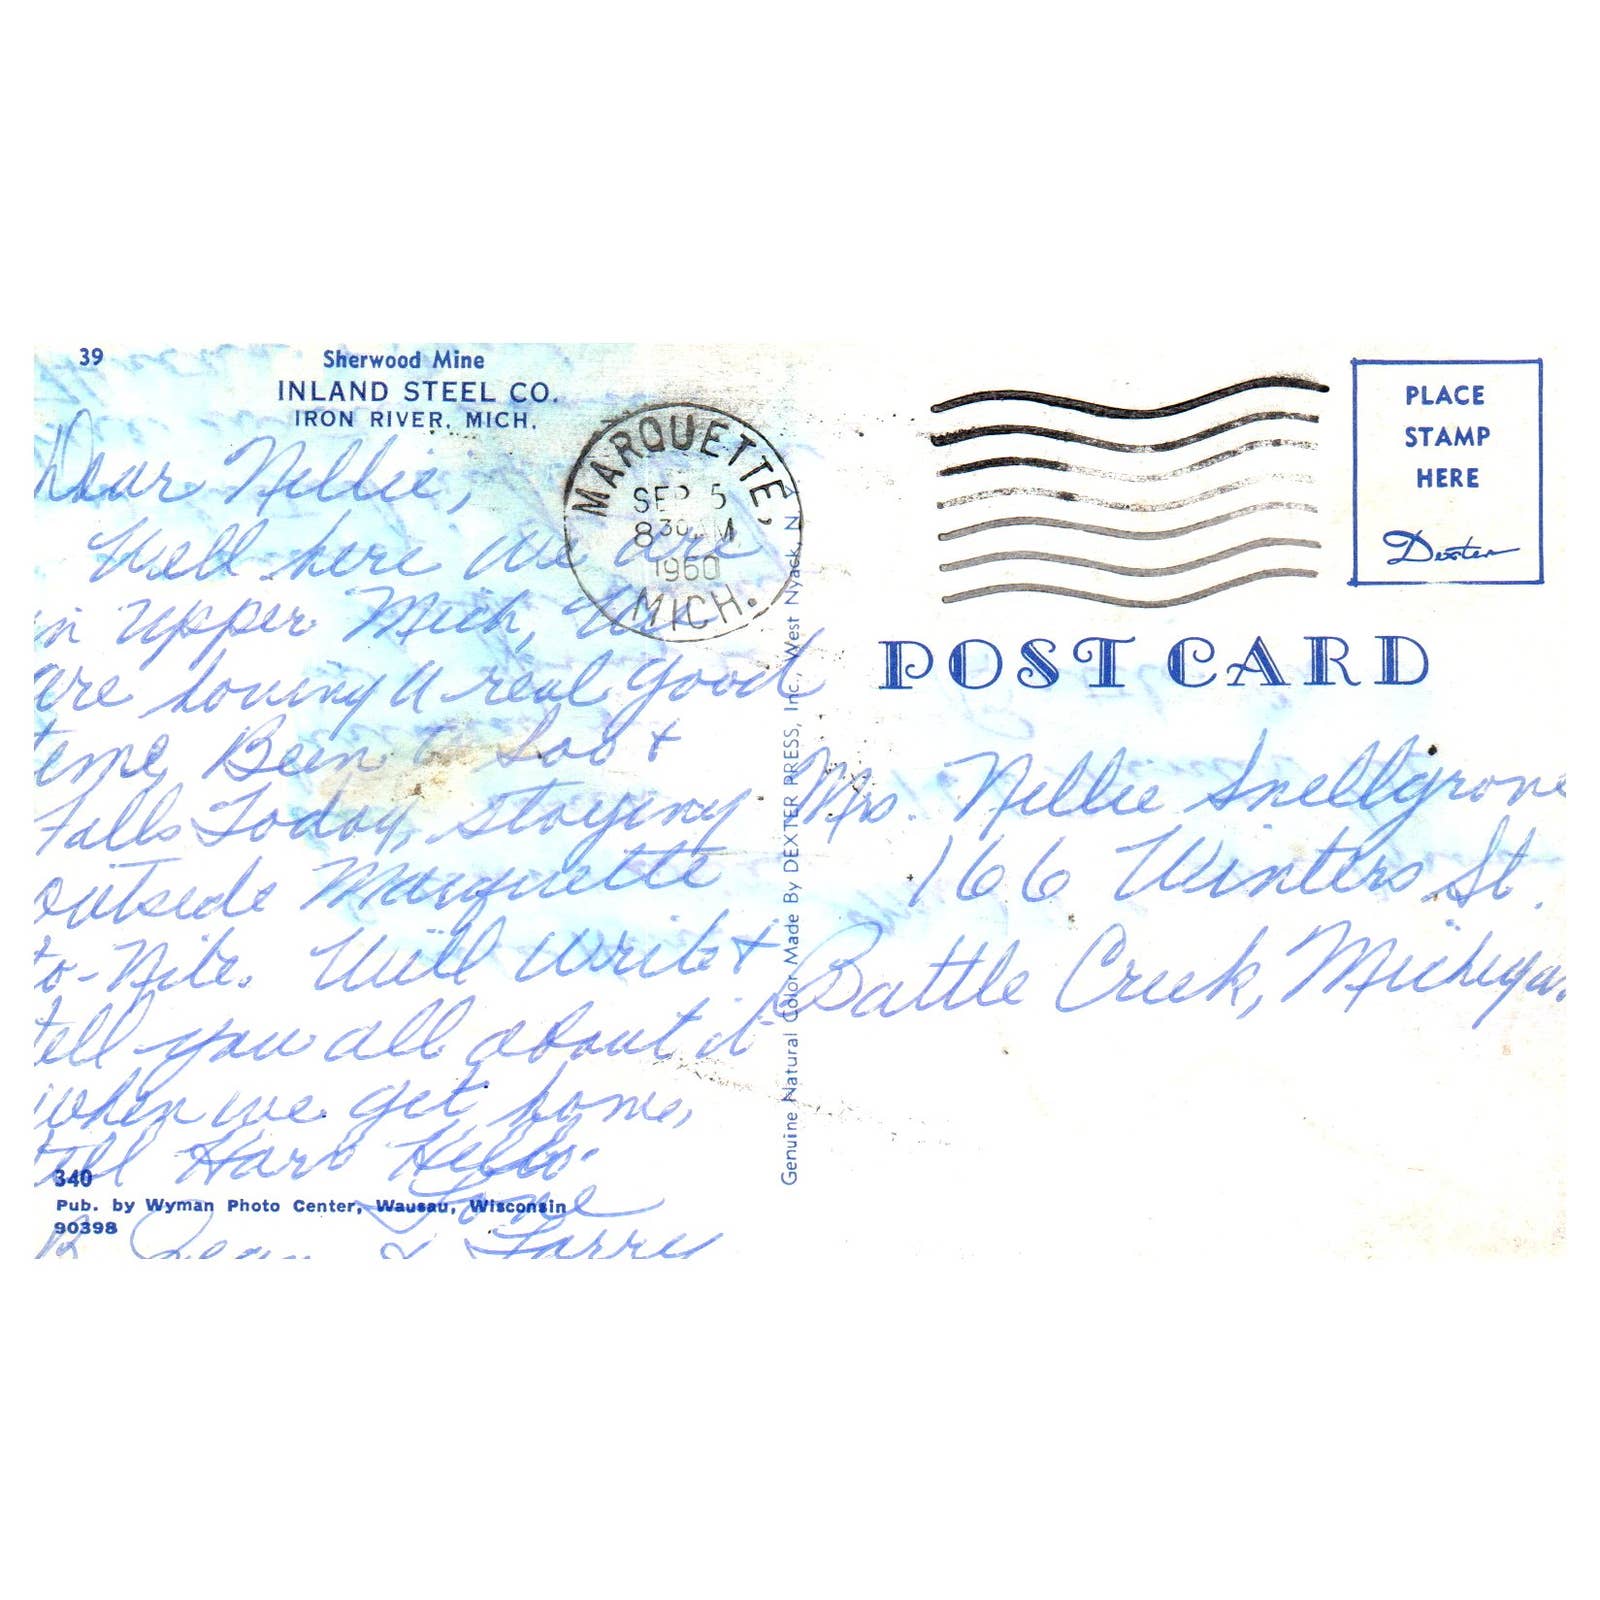 39
Sherwood Mine
INLAND STEEL CO.
IRON RIVER, MICH.
Dear Nellie,
Well here we are
in Upper Mich, We
are having a real good
time, Been to Soo &
Falls Today, staying
outside Marquette
to-Nite. Will Write &
tell you all about it
when we get home,
tell Harv Hello.
Love
& Larry
340
Pub. by Wyman Photo Center, Wausau, Wisconsin
90398
MARQUETTE,
SEP 5
8 30 AM
1960
MICH.
Genuine Natural Color Made By DEXTER PRESS, Inc., West Nyack, N.Y.
PLACE
STAMP
HERE
Dexter
POST CARD
Mrs. Nellie Snellgrove
166 Winters St.
Battle Creek, Michigan.